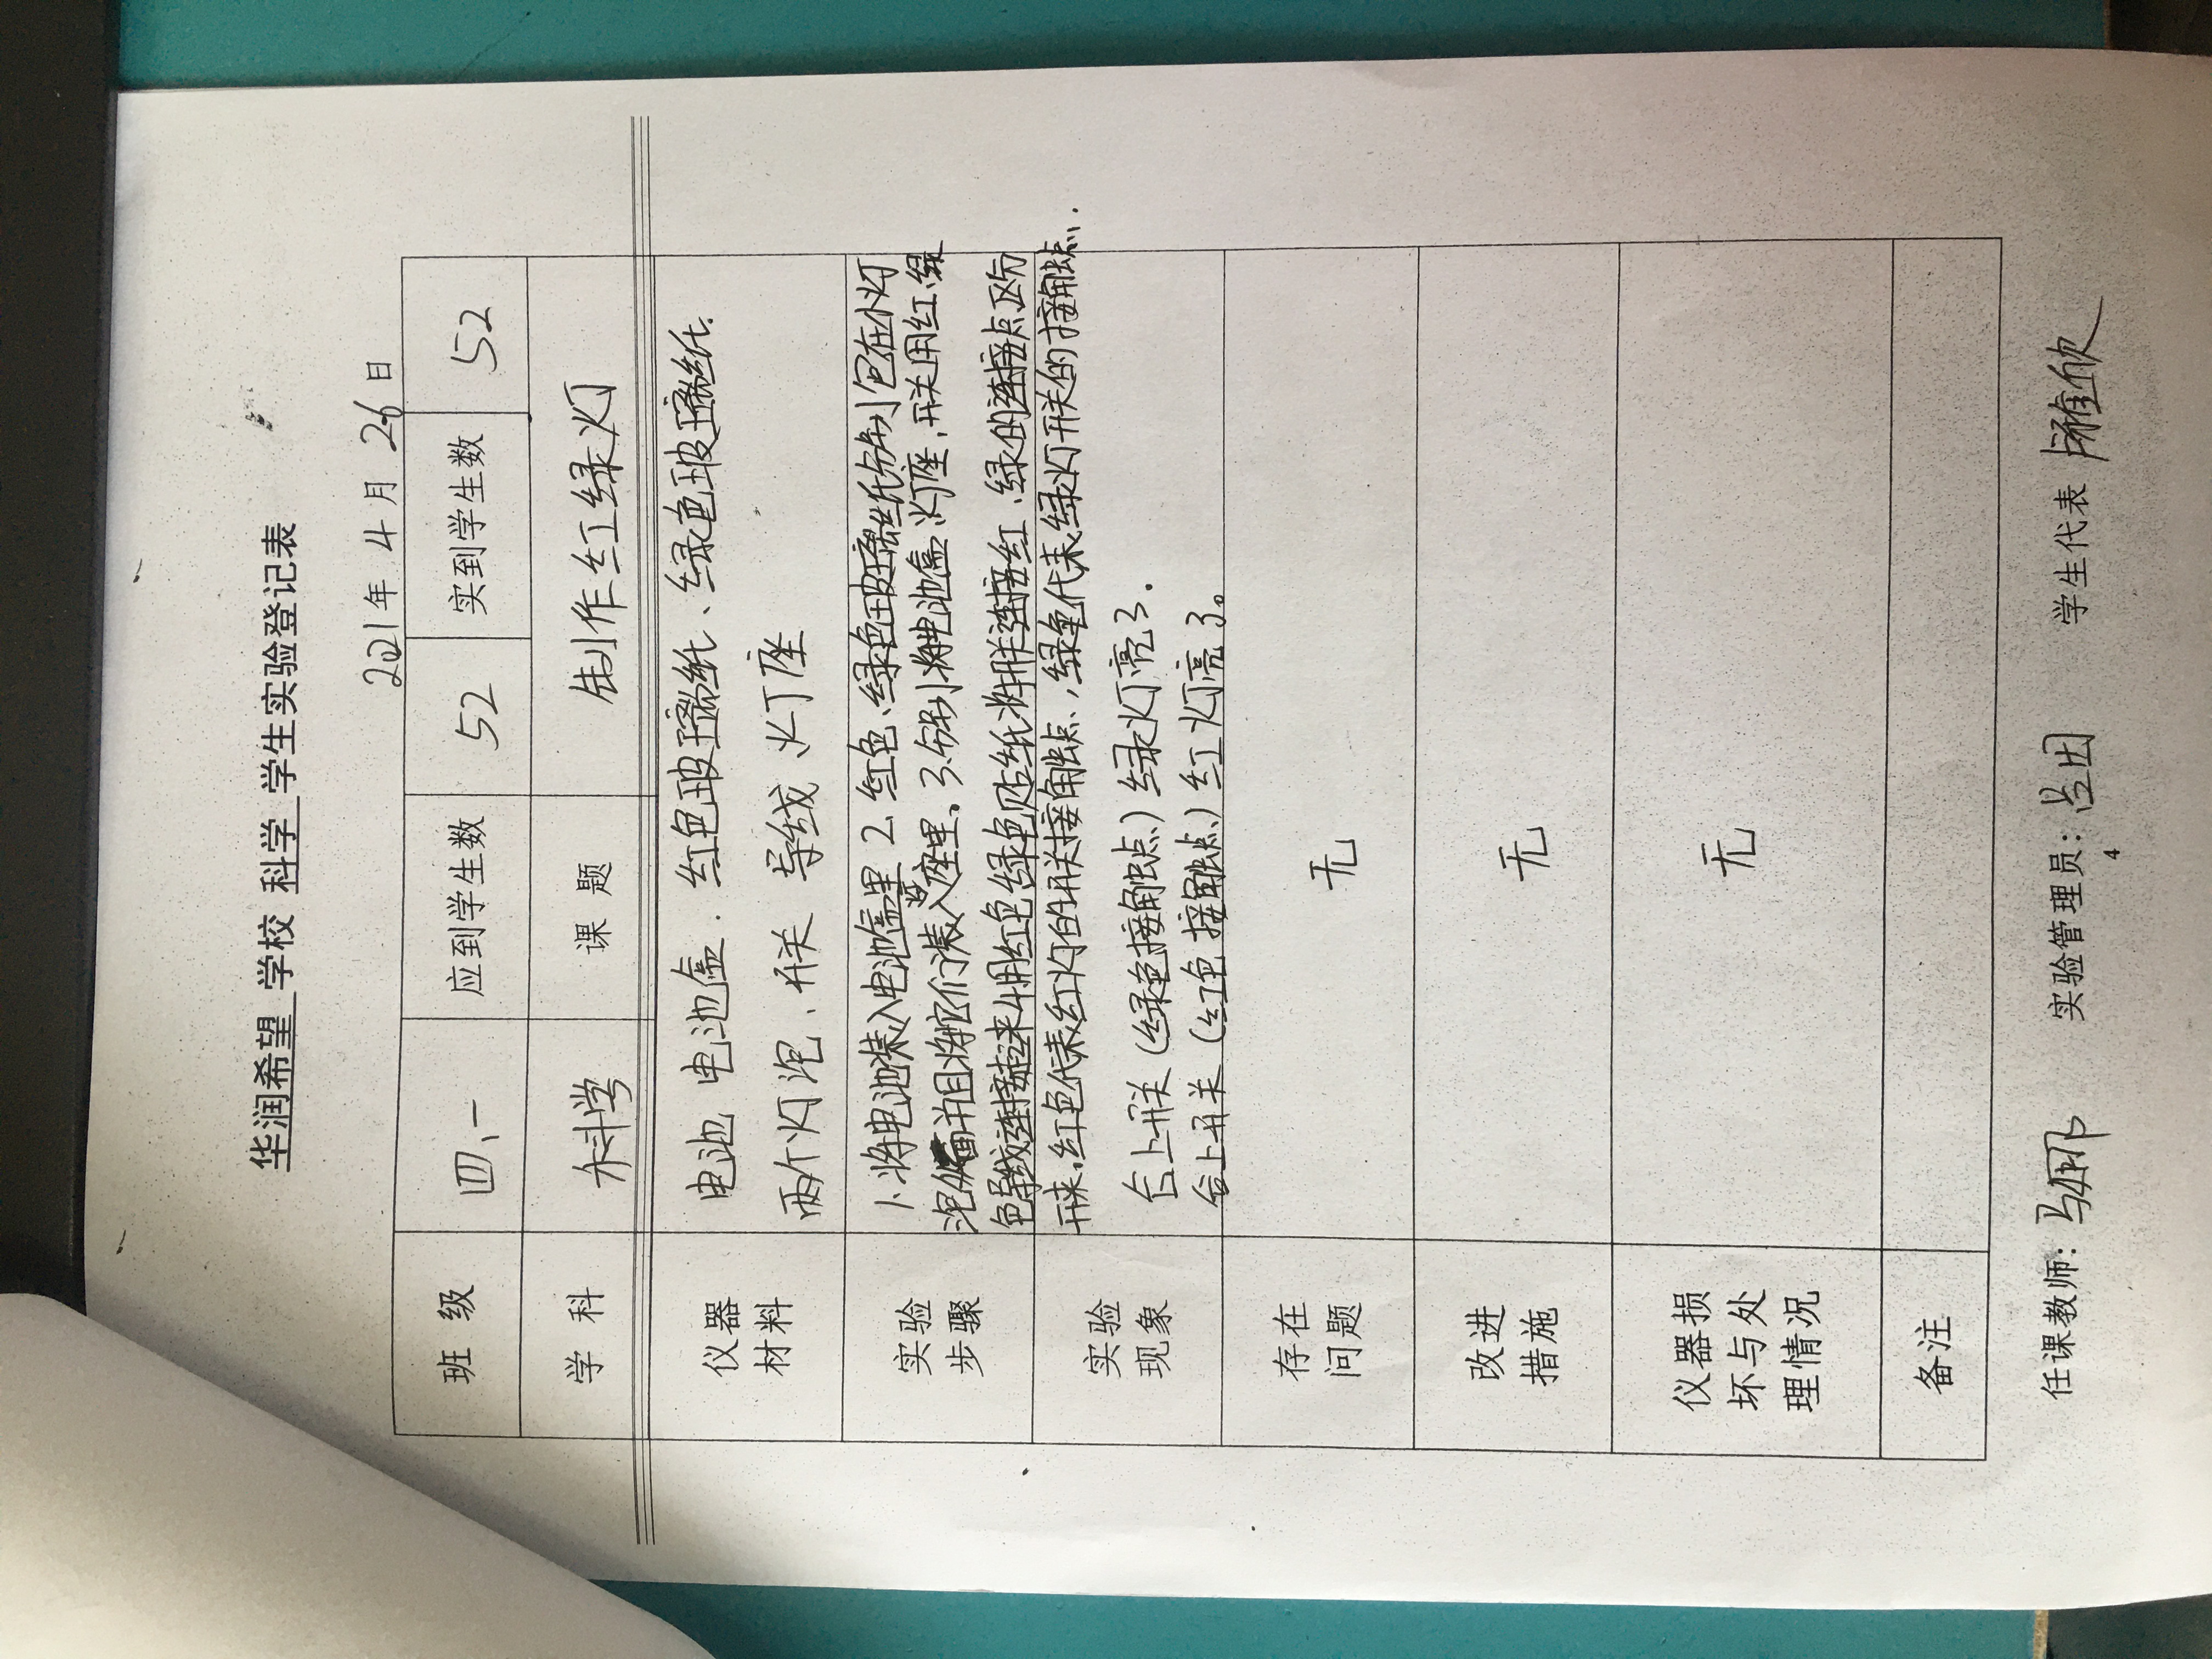 华润希望 学校 科学 学生实验登记表
2021年 4 月 26 日
班 级 四、一 应到学生数 52 实到学生数 52
学 科 科学 课 题 制作红绿灯
仪器材料 电池 电池盒、红色玻璃纸、绿色玻璃纸.
两个灯泡、开关 导线 灯座
实验步骤 1、将电池装入电池盒里 2、红色、绿色玻璃纸分别包在小灯
泡并且将它们装入座里、3、分别将电池盒、灯座、开关用红、绿
色导线连接起来4用红色绿色贴纸将连接红、绿的连接点区分
开来,红色代表红灯的开关接触点,绿色代表绿灯开关的接触点.
实验现象 合上开关（绿色接触点）绿灯亮了.
合上开关（红色接触点）红灯亮了。
存在问题 无
改进措施 无
仪器损坏与处理情况 无
备注
任课教师: 实验管理员: 学生代表
4